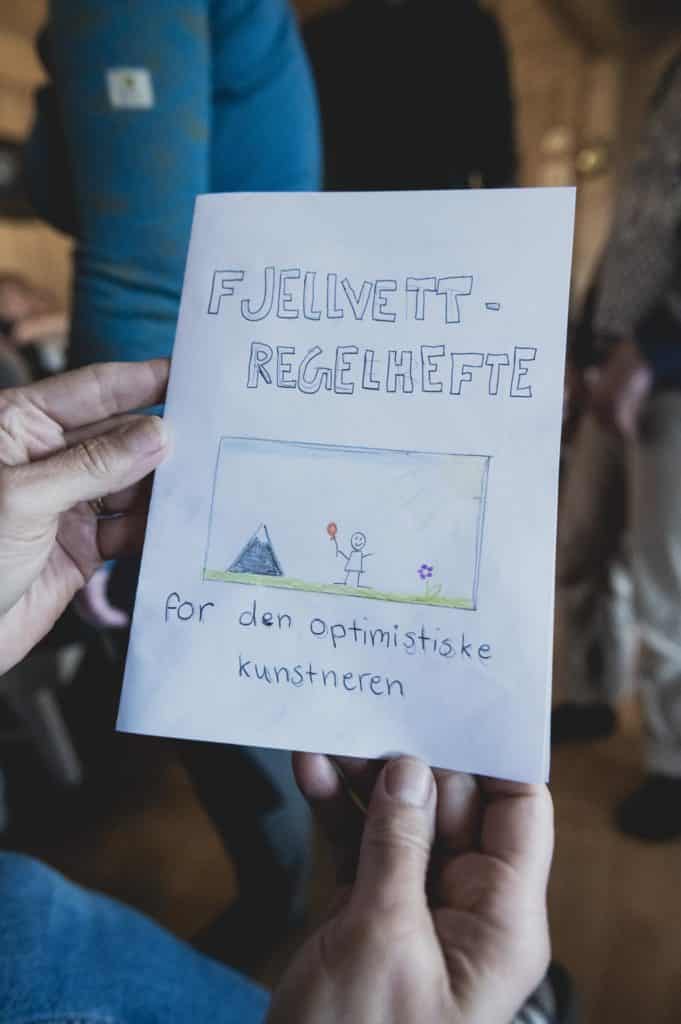 FJELLVETT-
REGELHEFTE
for den optimistiske
kunstneren